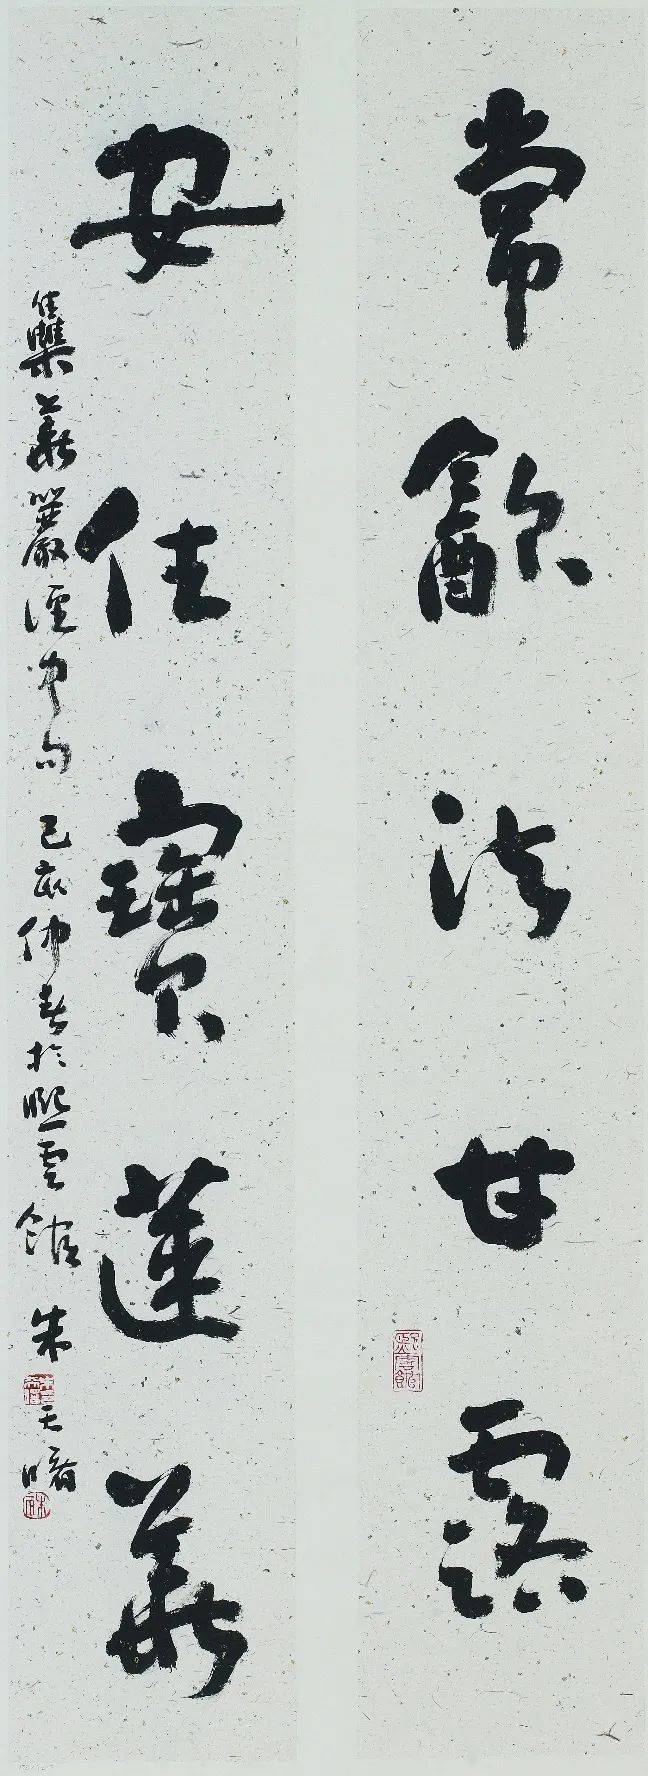 常飲法甘露
安住寶蓮華
集華嚴經中句 己亥仲春於熙雲館 朱天曙